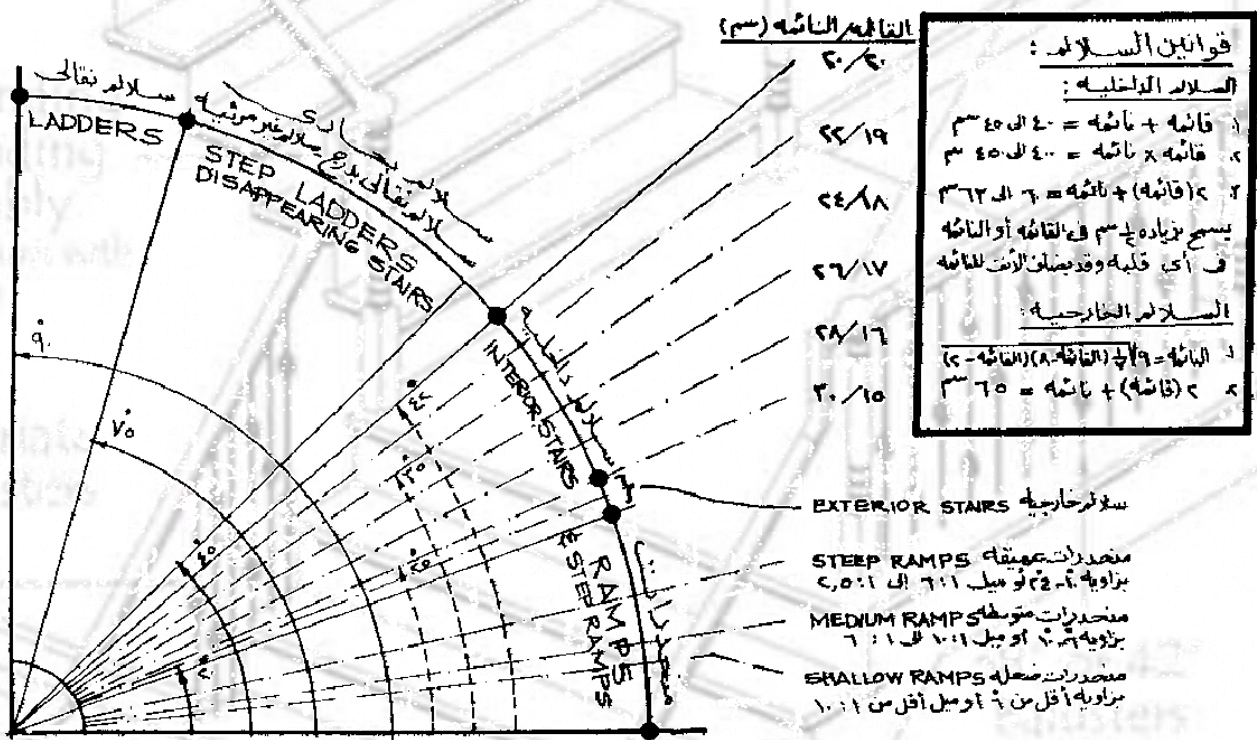 القائمه/النائمه (سم)
٢٠/٢٠
٢٢/١٩
٢٤/١٨
٢٦/١٧
٢٨/١٦
٣٠/١٥
قوانين السلالم :
السلالم الداخليه :
١. قائمه + نائمه = ٤٠ الى ٤٥ سم
٢. قائمه x نائمه = ٤٠٠ الى ٤٥٠ سم
٣. ٢(قائمه) + نائمه = ٦٠ الى ٦٣ سم
يسمح بزياده ½ سم فى القائمه أو النائمه
فى أى قلبه وقد يضاف الأنف للنائمه
السلالم الخارجيه :
٢. ٢(قائمه) + نائمه = ٦٥ سم
سلالم نقالى
LADDERS
سلالم بحارى
سلالم نقالى بدرج سلالم غير مرئيه
STEP LADDERS
DISAPPEARING STAIRS
سلالم داخليه
INTERIOR STAIRS
منحدرات
RAMPS
& STEP RAMPS
٩٠°
٧٥°
٤٥°
٢٠°
٤٢°
٣٥°
٢٥°
EXTERIOR STAIRS سلالم خارجيه
STEEP RAMPS منحدرات عميقه
بزاويه ٢٤ أو ميل ٦:١ إلى ٢,٥:١
MEDIUM RAMPS منحدرات متوسطه
بزاويه أو ميل ١٠:١ إلى ٦:١
SHALLOW RAMPS منحدرات ضحله
بزاويه أقل من ٦° أو ميل أقل من ١٠:١